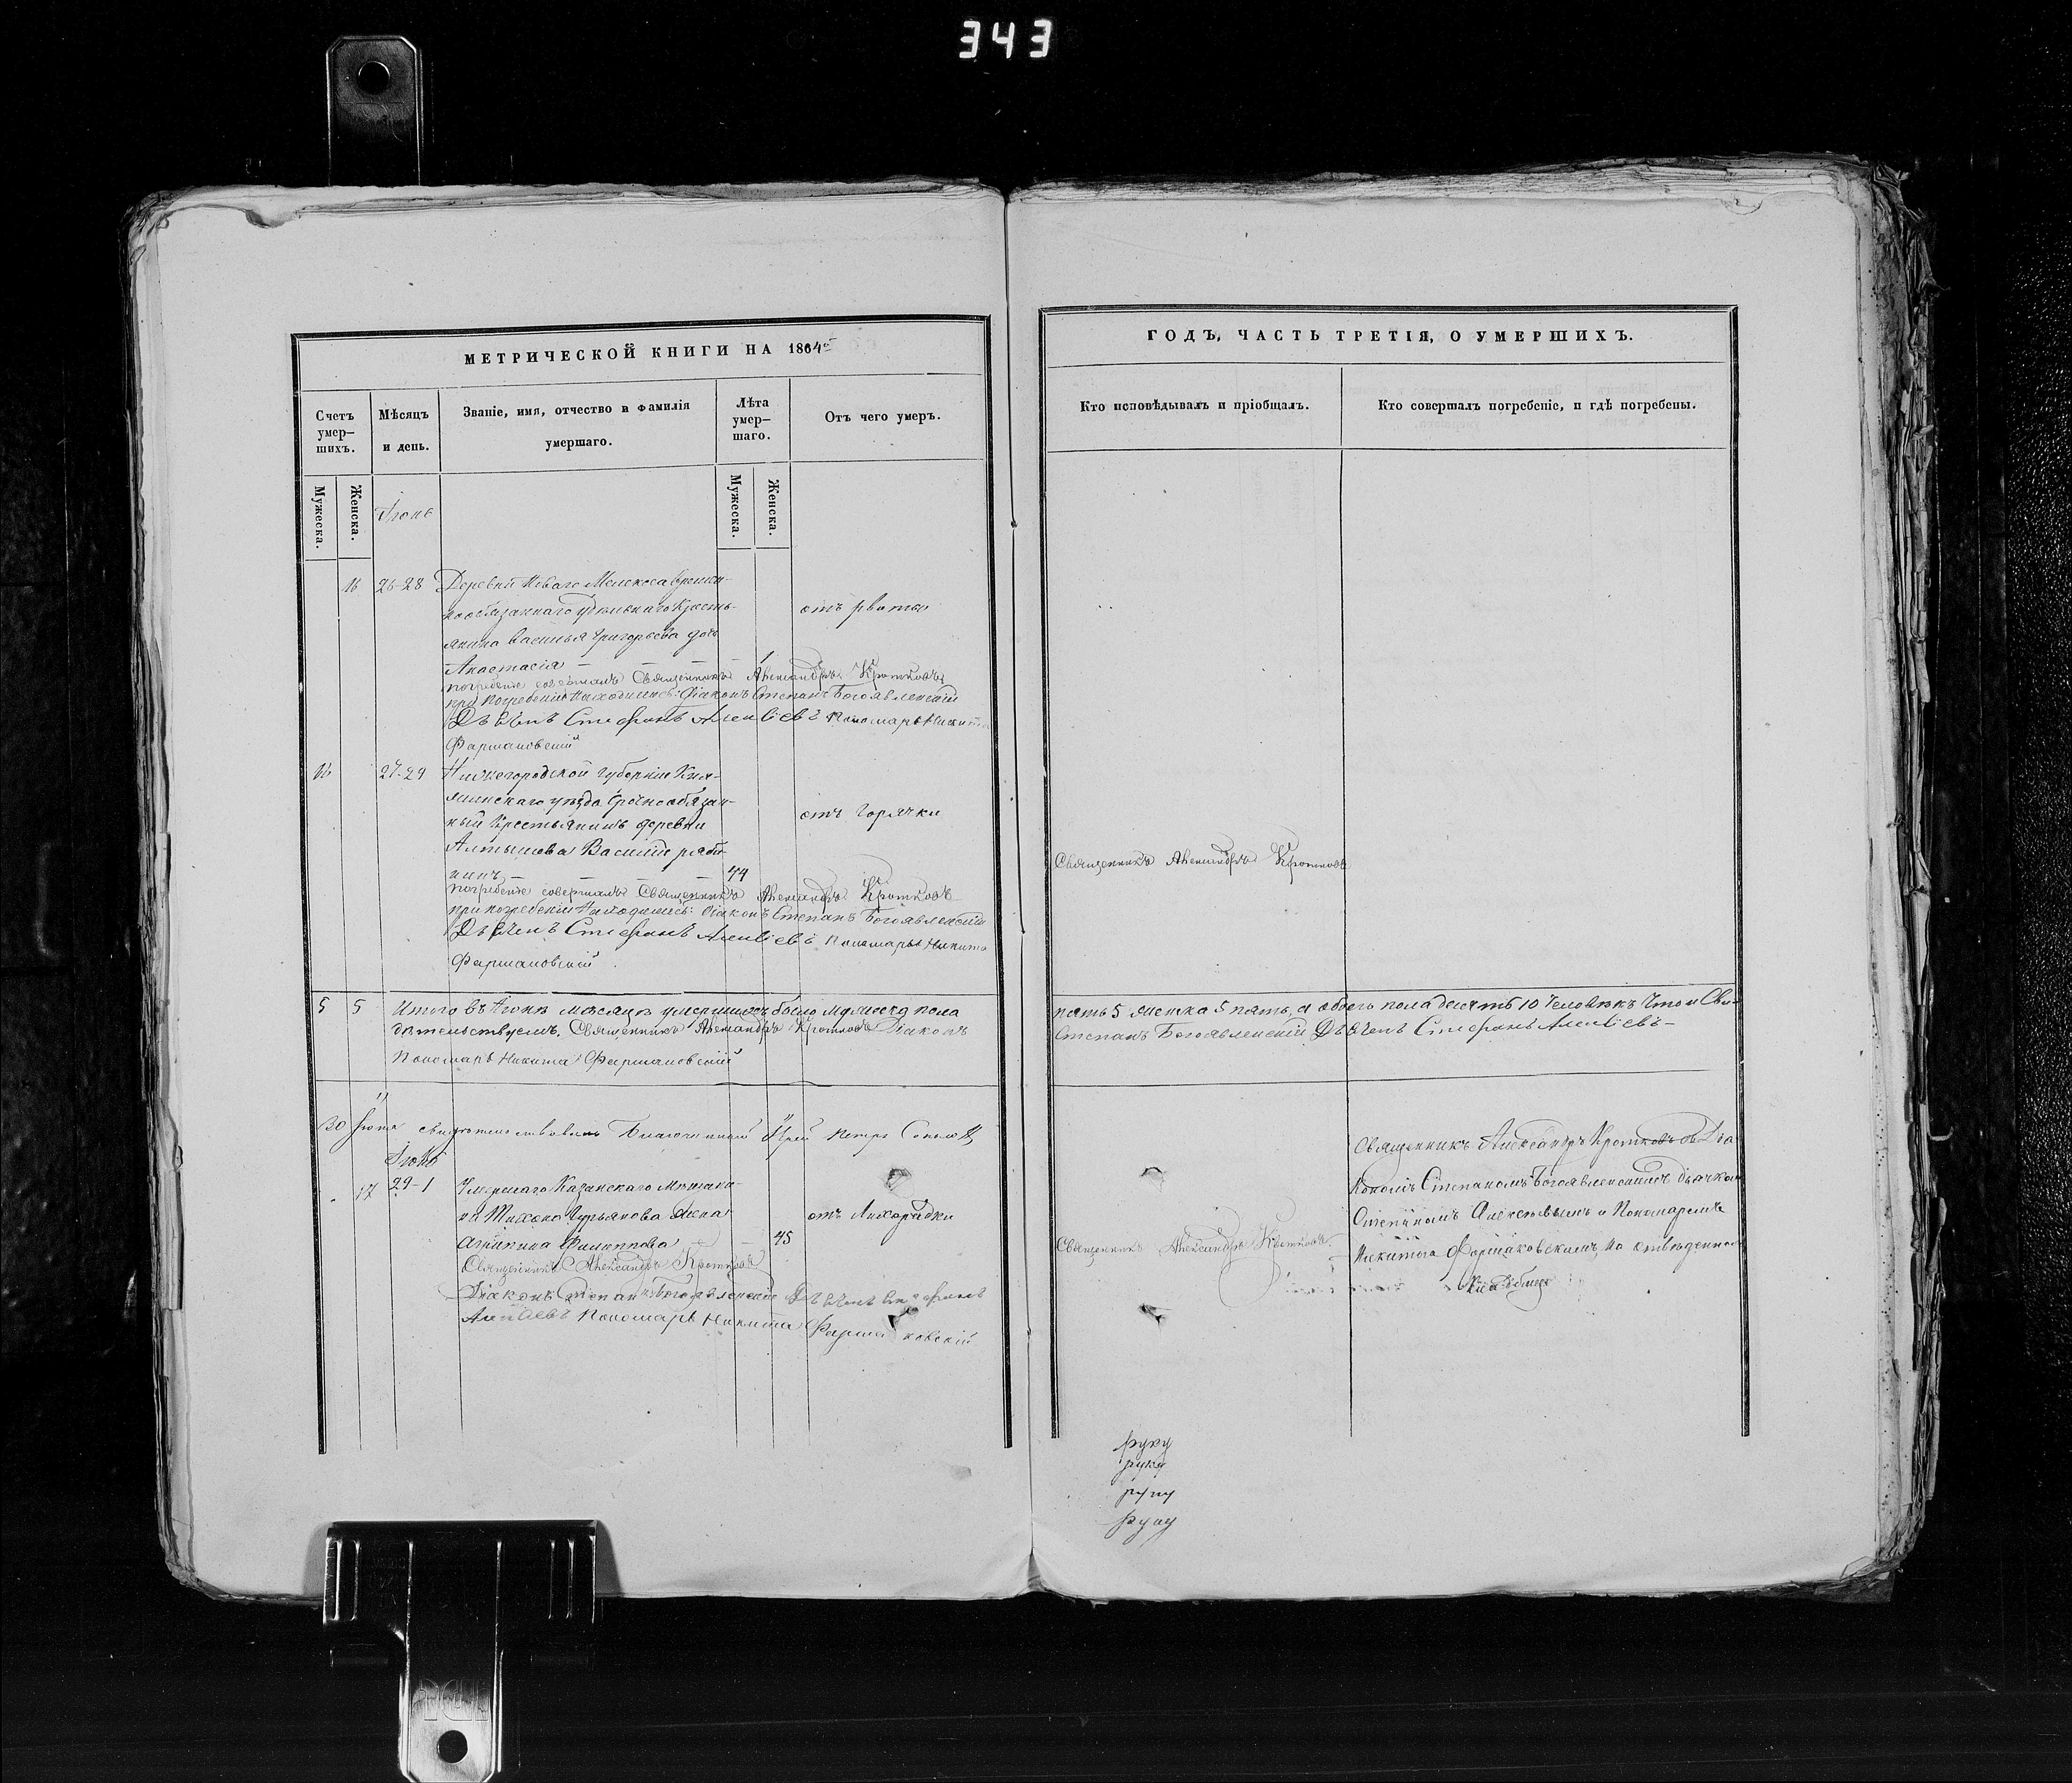 343
МЕТРИЧЕСКОЙ КНИГИ НА 1864й
Счетъ умер-
шихъ.
Мѣсяцъ
и день.
Званіе, имя, отчество и фамилія
умершаго.
Лѣта
умер-
шаго.
Отъ чего умеръ.
Мужеска.
Женска.
Мужеска.
Женска.
Іюнь
16 26-28 Деревни Новаго Мелекеса времен-
нообязаннаго удѣльнаго Кресть- отъ рвоты
янина Василья Григорьева дочь
Анастасія 1
погребеніе совершалъ Священникъ Александръ Кротковъ
при погребеніи находились: Діаконъ Степанъ Богоявленскій
Дьячекъ Стефанъ Алексіевъ Пономарь Никита
Фармаковскій
16 27-29 Нижегородской Губерніи Кня-
гининскаго уѣзда Срочнообязан-
ный Крестьянинъ деревни отъ Горячки
Василій
44
погребеніе совершалъ Священникъ Александръ Кротковъ
при погребеніи находились: Діаконъ Степанъ Богоявленскій
Дьячекъ Стефанъ Алексіевъ Пономарь Никита
Фармаковскій
5 5 Итого въ Іюнѣ мѣсяцѣ умершихъ было мужеска пола
дательствуемъ, Священникъ Александръ Кротковъ Діаконъ
Пономарь Никита Фармаковскій
30 Іюня свидѣтельствовалъ Благочинный Іерей Петръ
Іюнь
17 29-1 Умершаго Казанскаго Мѣщани-
на Тихона Гурьянова жена отъ Лихорадки
Агрипина Филиппова 45
Священникъ Александръ Кротковъ
Діаконъ Степанъ Богоявленскій Дьячекъ Стефанъ
Алексіевъ Пономарь Никита Фармаковскій
ГОДЪ, ЧАСТЬ ТРЕТІЯ, О УМЕРШИХЪ.
Кто исповѣдывалъ и пріобщалъ.
Кто совершалъ погребеніе, и гдѣ погребены.
Священникъ Александръ Кротковъ
пять 5 женска 5 пять, а обоего пола десять 10 Человѣкъ Что и Сви-
Степанъ Богоявленскій Дьячекъ Стефанъ Алексіевъ-
Священникъ Александръ Кротковъ съ Діа
кономъ Степаномъ Богоявленскимъ дьячком
Степаномъ Алексѣевымъ и Пономаремъ
Священникъ Александръ Кротковъ
Никитою Фармаковскимъ, на отведенном
Кладбище
руку
руку
руку
руку